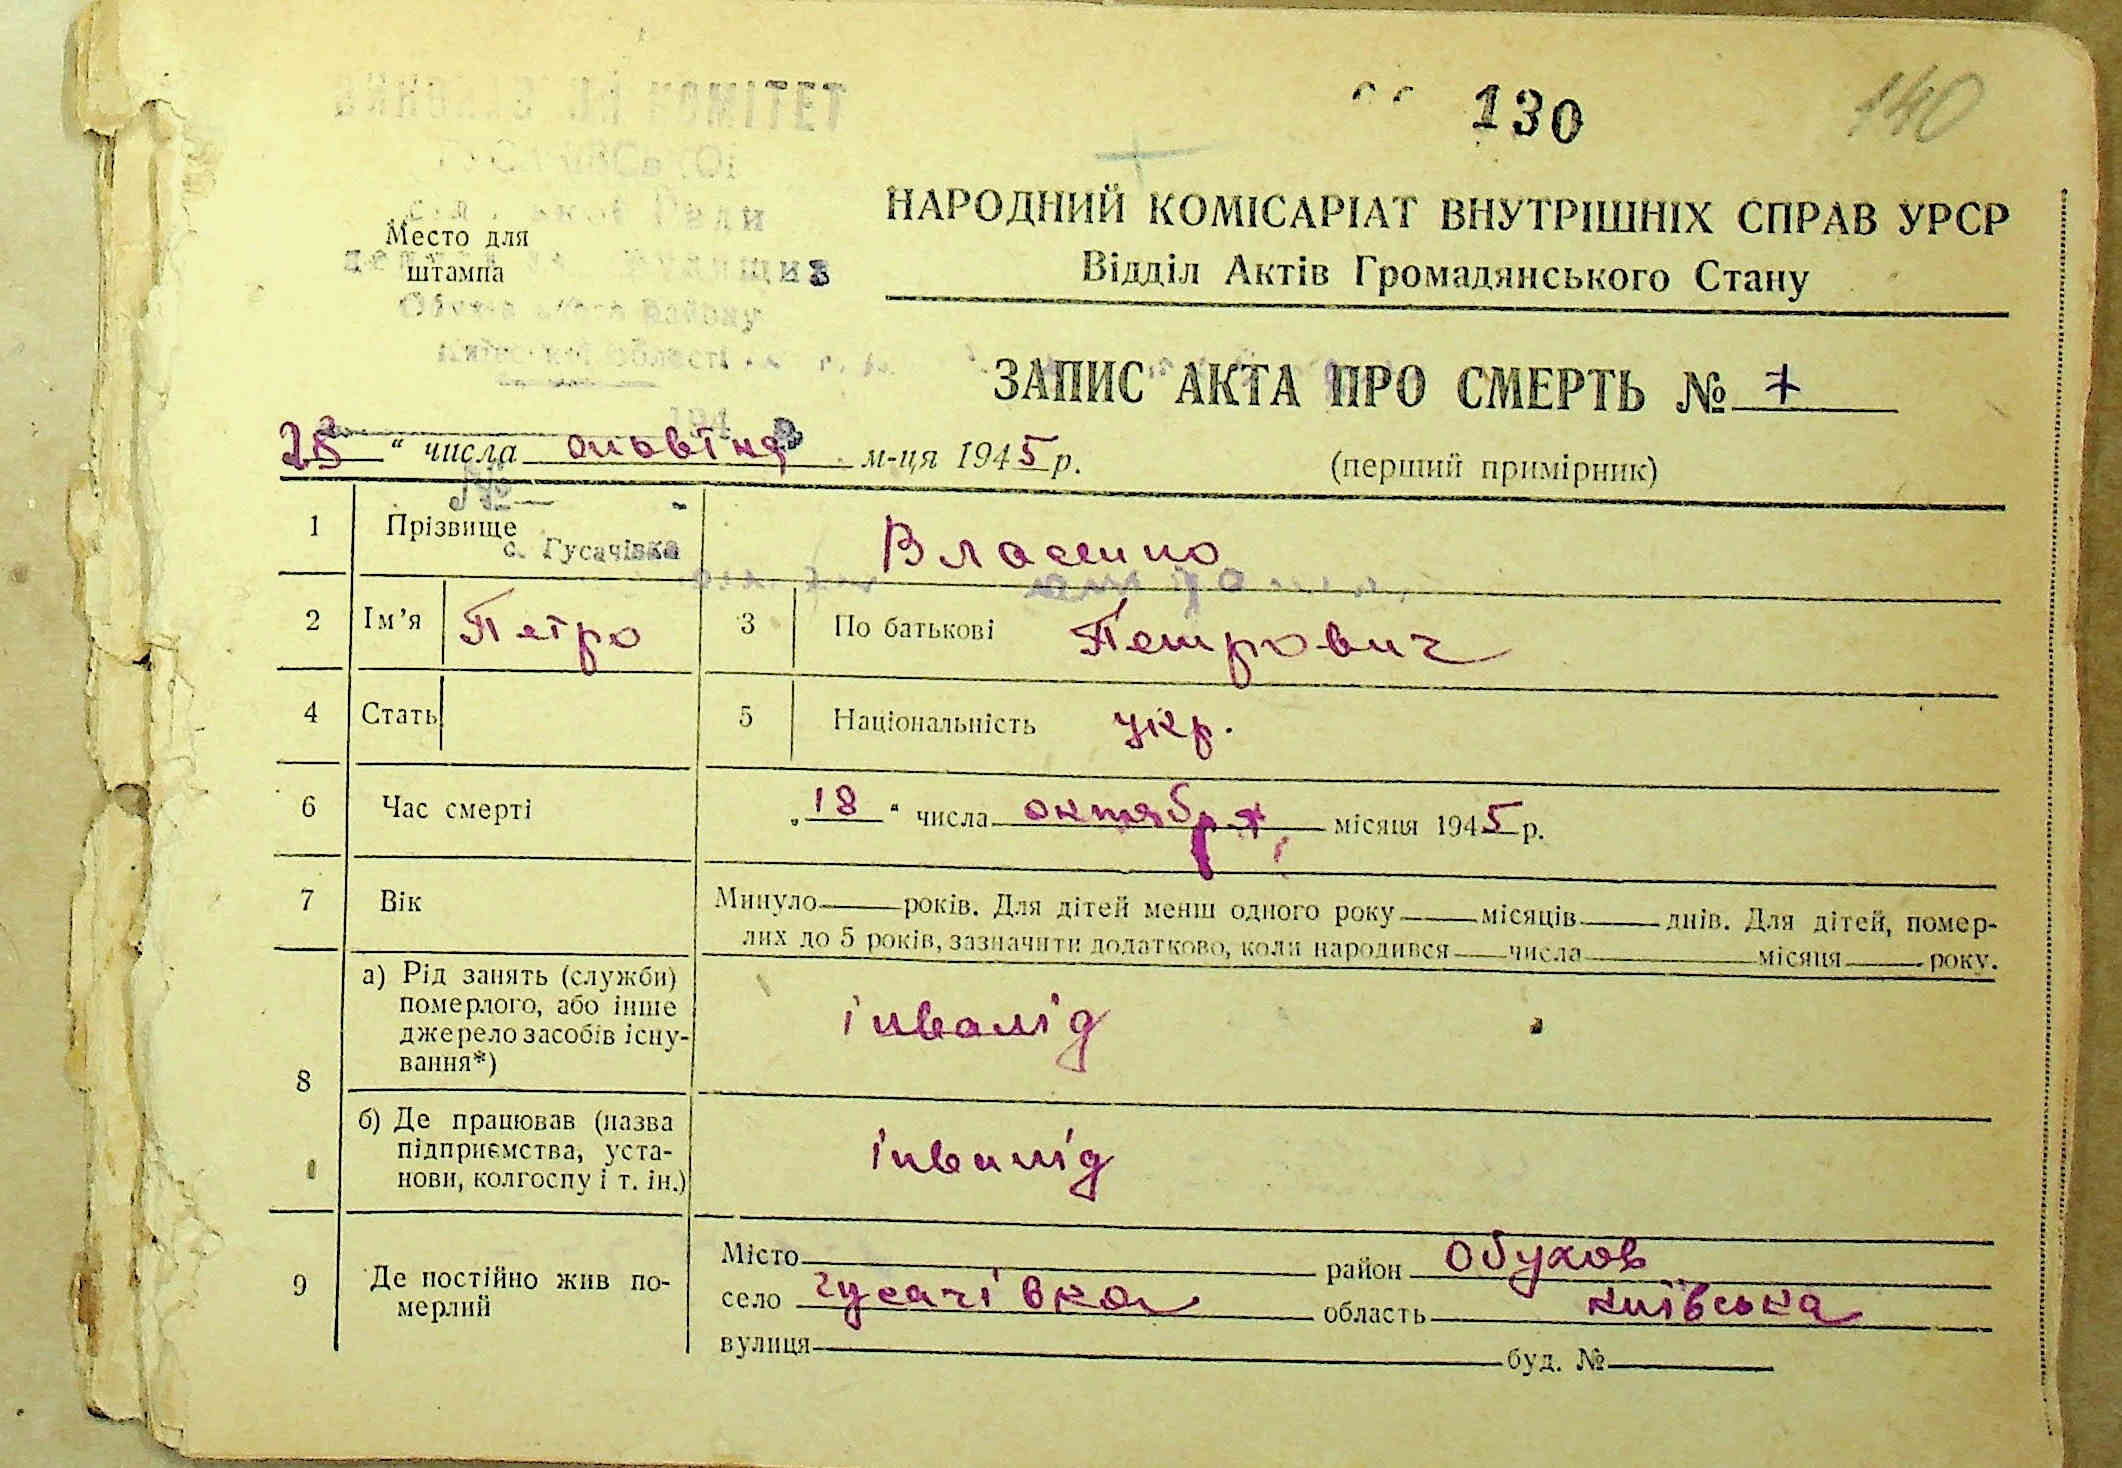 130
140
КОМІТЕТ
НАРОДНИЙ КОМІСАРІАТ ВНУТРІШНІХ СПРАВ УРСР
Место для
штампа
Відділ Актів Громадянського Стану
району
області
ЗАПИС АКТА ПРО СМЕРТЬ № 7
" числа жовтня м-ця 1945 р.
(перший примірник)
№
1 Прізвище Власенко
с. Гусачівка
2 Ім'я Петро 3 По батькові Петрович
4 Стать 5 Національність укр.
6 Час смерті „18" числа октября місяця 1945 р.
7 Вік Минуло років. Для дітей менш одного року місяців днів. Для дітей, помер-
лих до 5 років, зазначити додатково, коли народився числа місяця року.
8 а) Рід занять (служби)
померлого, або інше
джерело засобів існу-
вання*)
інвалід
б) Де працював (назва
підприємства, уста-
нови, колгоспу і т. ін.)
інвалід
9 Де постійно жив по-
мерлий
Місто район Обухов
село гусачівка область київська
вулиця буд. №